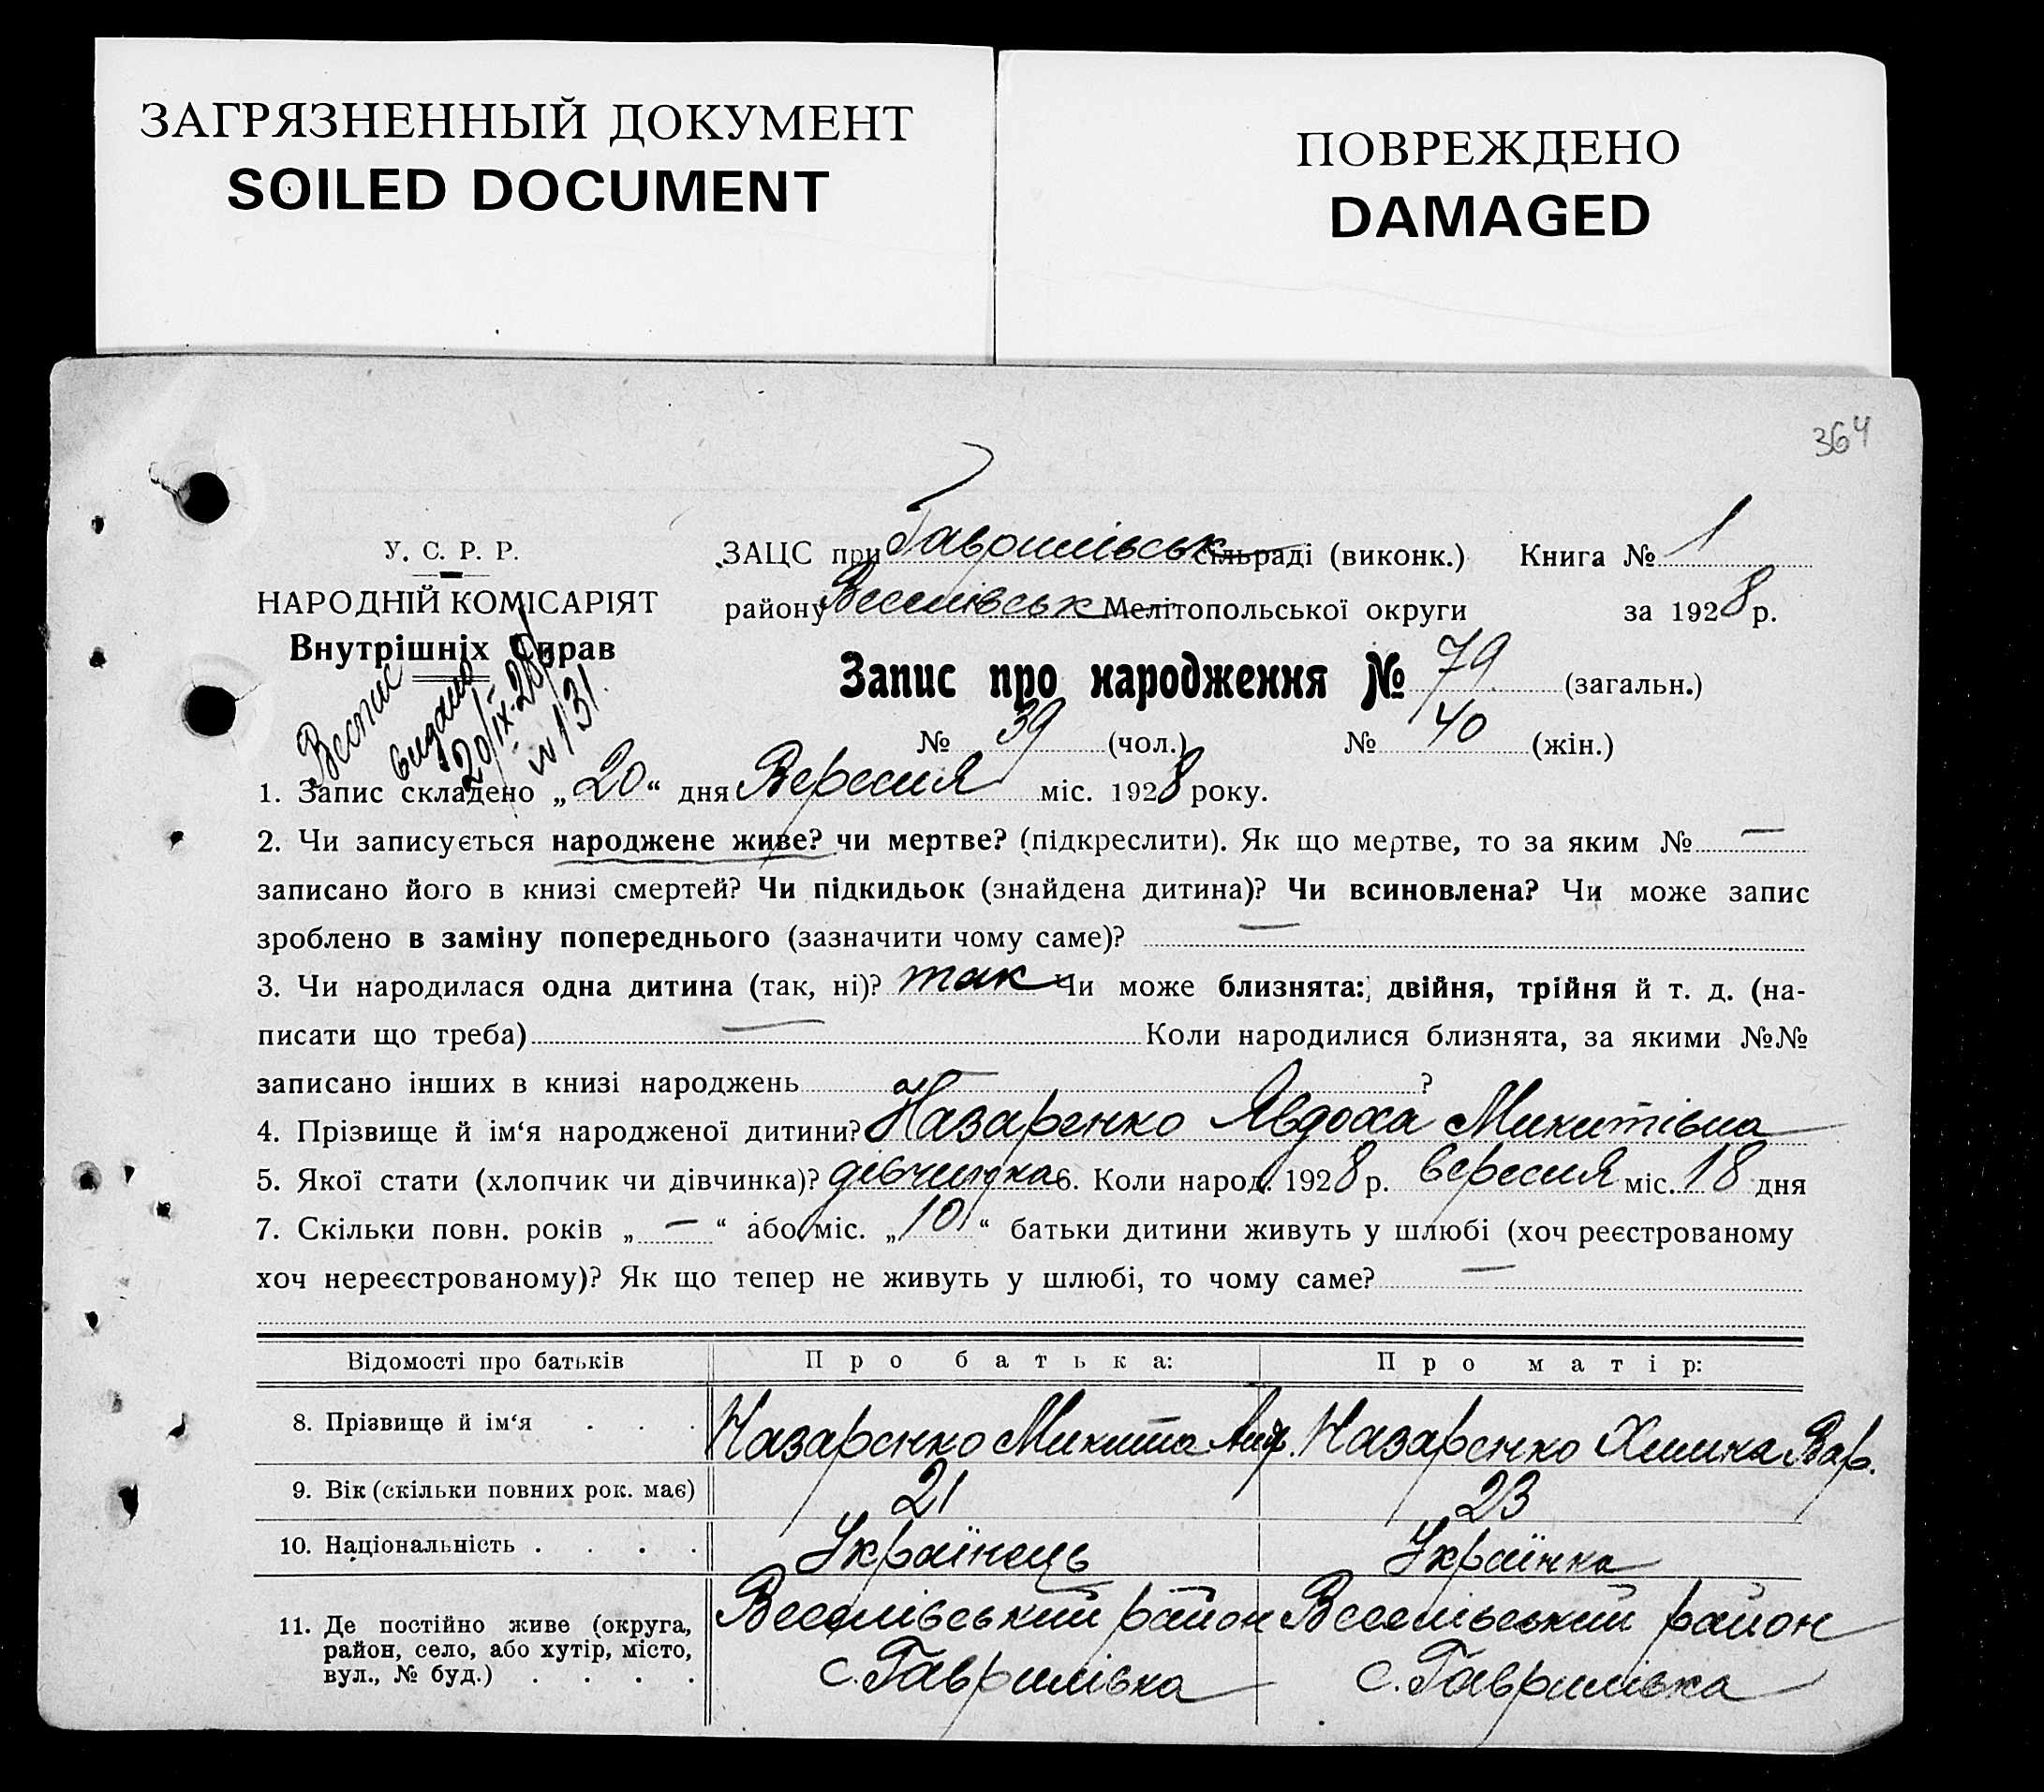 ЗАГРЯЗНЕННЫЙ ДОКУМЕНТ
SOILED DOCUMENT
ПОВРЕЖДЕНО
DAMAGED
364
У. С. Р. Р.
НАРОДНІЙ КОМІСАРІЯТ
Внутрішніх Справ
Веспис
видано
20/ІХ-28 р
№ 131.
ЗАЦС при Гаврилівськ сільраді (виконк.) Книга № 1
району Веселівськ Мелітопольської округи за 1928 р.
Запис про народження № 79 (загальн.)
№ 39 (чол.) № 40 (жін.)
1. Запис складено „20“ дня Вересня міс. 1928 року.
2. Чи записується народжене живе? чи мертве? (підкреслити). Як що мертве, то за яким № —
записано його в книзі смертей? Чи підкидьок (знайдена дитина)? Чи всиновлена? Чи може запис
зроблено в заміну попереднього (зазначити чому саме)? —
3. Чи народилася одна дитина (так, ні)? так Чи може близнята: двійня, трійня й т. д. (на-
писати що треба) — Коли народилися близнята, за якими №№
записано інших в книзі народжень — ?
4. Прізвище й ім‘я народженої дитини? Назаренко Явдоха Микитівна
5. Якої стати (хлопчик чи дівчинка)? дівчинка 6. Коли народ. 1928 р. вересня міс. 18 дня
7. Скільки повн. років „—“ або міс. „10“ батьки дитини живуть у шлюбі (хоч реєстрованому
хоч нереєстрованому)? Як що тепер не живуть у шлюбі, то чому саме? —
Відомості про батьків Про батька: Про матір:
8. Прізвище й ім‘я . . . Назаренко Микита Анд. Назаренко Химка Вар.
9. Вік (скільки повних рок. має) 21 23
10. Національність . . . . Українець Українка
11. Де постійно живе (округа, Веселівський район Веселівський район
район, село, або хутір, місто,
вул., № буд.) . . . . с. Гаврилівка с. Гаврилівка